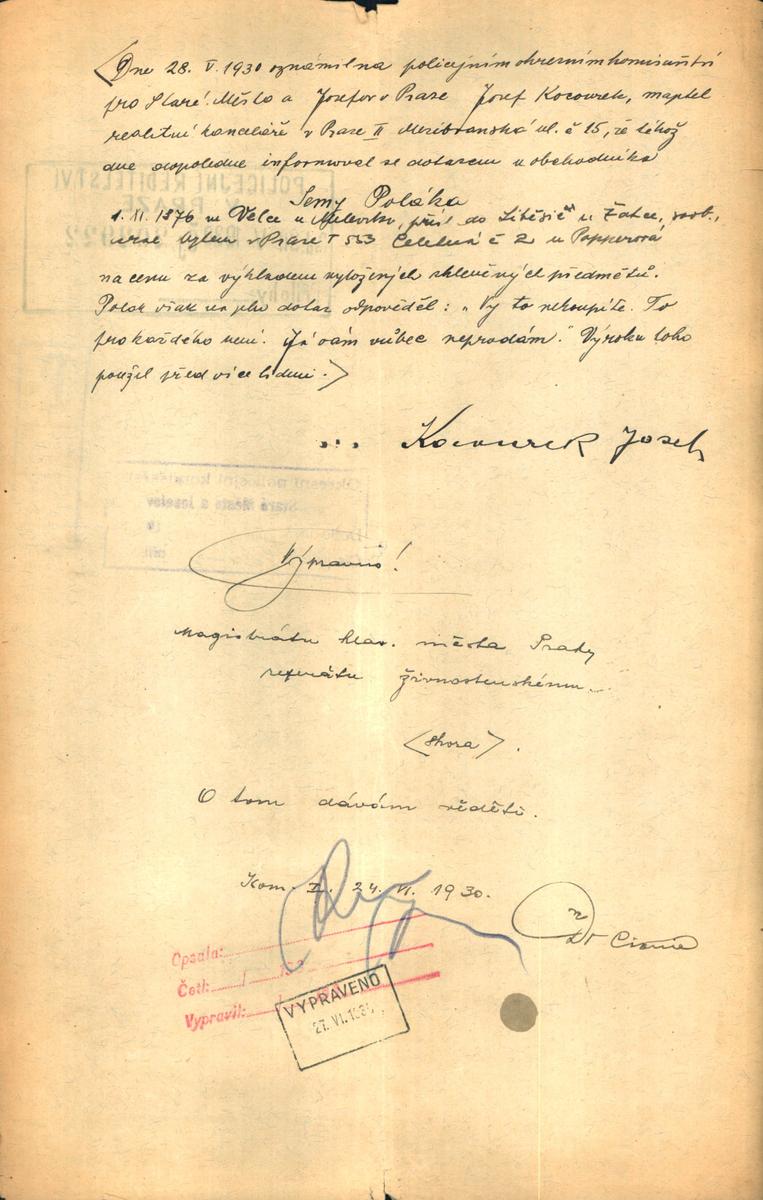 Dne 28. V. 1930 oznámil na policejním okresním komisařství
pro Staré Město a Josefov v Praze Josef Kocourek, majitel
realitní kanceláře v Praze II Mezibranská ul. č 15, že téhož
dne dopoledne informoval se dotazem u obchodníka
Semy Poláka
1. XI. 1876 ve Velce u Milevsko, přísl. do Liběšic u Žatce,
bytem v Praze I 553 Celetná č 2 u Popperová
na cenu za výkladem vyložených skleněných předmětů.
Polák však na jeho dotaz odpověděl: „Vy to nekoupíte. To
pro každého není. Já vám vůbec neprodám." Výroku toho
použil před více lidmi.
... Kocourek Josef
Výpravno!
Magistrátu hlav. města Prahy
referátu živnostenskému
(shora).
O tom dávám věděti.
Kom. I. 24. VI. 1930.
Dr
Opsala:
Četl:
Vypravil:
VYPRAVENO
27. VI. 1930
POLICEJNÍ ŘEDITELSTVÍ
V PRAZE
Staré Město a Josefov